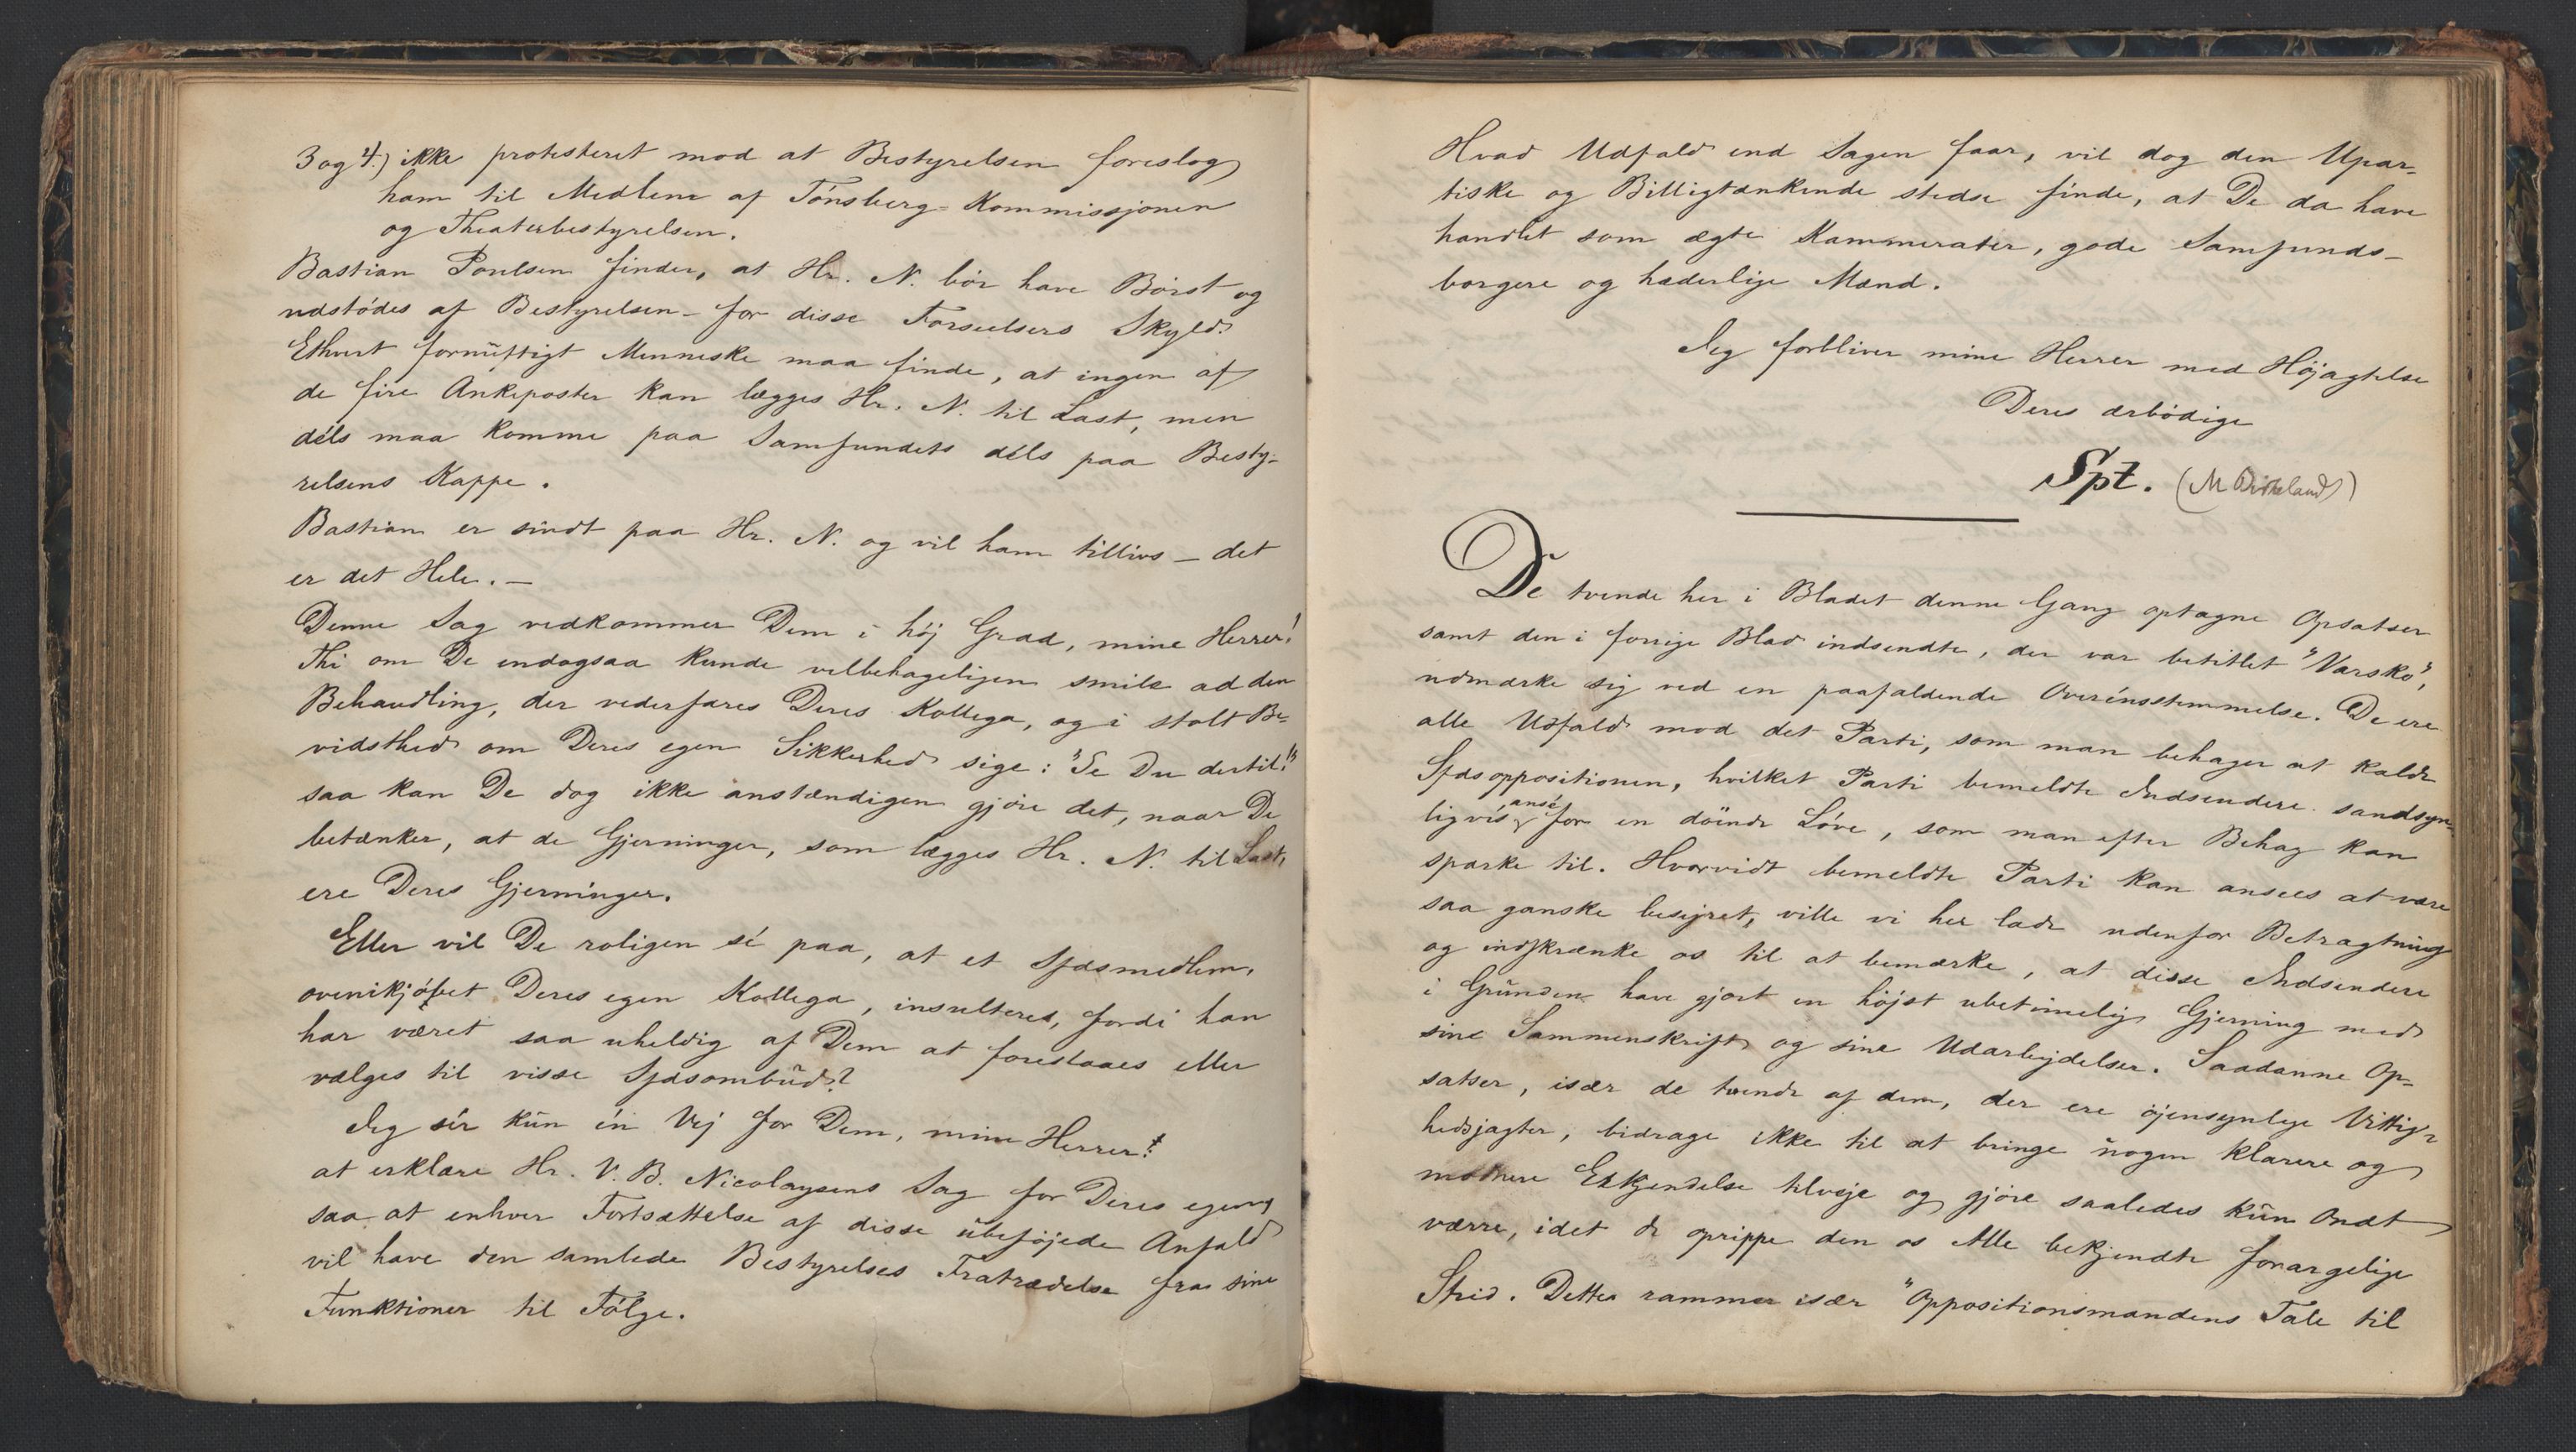 3 og 4.) ikke protesteret mod at Bestyrelsen foreslog
ham til Medlem af Tónsberg-Kommissjonen
og Theaterbestyrelsen.
Bastian Poulsen finder, at Hr. N. bór have Bórst og
udstódes af Bestyrelsen - for disse Forseelsers Skyld.
Ethvert fornuftigt Menneske maa finde, at ingen af
de fire Ankeposter kan lægges Hr. N. til Last, men
déls maa komme paa Samfundets déls paa Besty-
relsens Kappe.
Bastian er sindt paa Hr. N. og vil ham tillivs - det
er det Hele. -
Denne Sag vedkommer Dem i hôj Grad, mine Herrer!
Thi om De endogsaa kunde velbehageligen smile ad den
Behandling, der vederfares Deres Kollega, og i stolt Be-
vidsthed om Deres egen Sikkerhed sige: "Se Du dertil!"
saa kan De dog ikke anstændigen gjóre det, naar De
betænker, at de Gjerninger, som lægges Hr. N. til Last,
ere Deres Gjerninger.
Eller vil De roligen sé paa, at et Sfdsmedlem,
ovenikjóbet Deres egen Kollega, insulteres, fordi han
har været saa uheldig af Dem at foreslaaes eller
vælges til visse Sfdsombud?
Jeg sér kun én Vej for Dem, mine Herrer!
at erklære Hr. V. B. Nicolaysens Sag for Deres egen,
saa at enhver Fortsættelse af disse ubefójede Anfald
vil have den samlede Bestyrelses Fratrædelse fra sine
Funktioner til Fólge.
Hvad Udfald end Sagen faar, vil dog den Upar-
tiske og Billigtænkende stedse finde, at De da have
handlet som ægte Kammerater, gode Samfunds-
borgere og hæderlige Mænd.
Jeg forbliver mine Herrer med Hôjagtelse
Deres ærbódige
Spt. (M Birkeland)
De tvende her i Bladet denne Gang optagne Opsatser
samt den i forrige Blad indsendte, der var betitlet "Varsko",
udmærke sig ved en paafaldende Overénsstemmelse. De ere
alle Udfald mod det Parti, som man behager at kalde
Sfdsoppositionen, hvilket Parti bemeldte Indsendere sandsyn-
ligvis ansé for en dôende Lóve, som man efter Behag kan
sparke til. Hvorvidt bemeldte Parti kan ansees at være
saa ganske besejret, ville vi her lade udenfor Betragtning
og indskrænke os til at bemærke, at disse Indsendere
i Grunden have gjort en hôjst ubetimelig Gjerning med
sine Sammenskrift og sine Udarbejdelser. Saadanne Op-
satser, især de tvende af dem, der ere ôjensynlige Vittig-
hedsjagter, bidrage ikke til at bringe nogen klarere og
modnere Erkjendelse tilveje og gjôre saaledes kun Ondt
værre, idet de oprippe den os Alle bekjendte forargelige
Strid. Dette rammer især "Oppositionsmandens Tale til